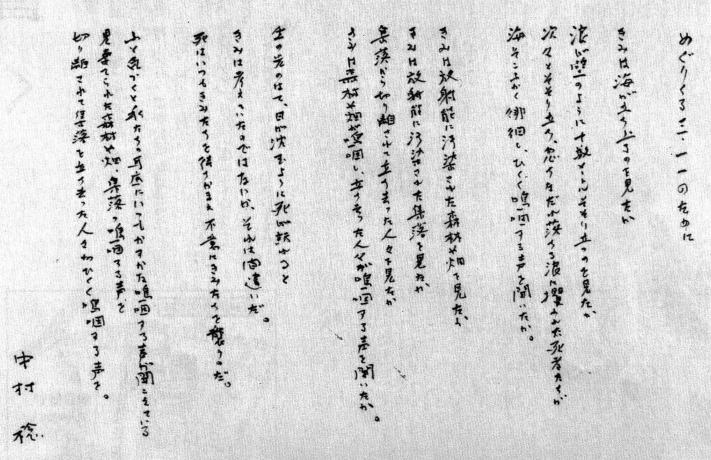 めぐりくる三・一一のために
きみは海が立ち上るのを見たか
浪が壁のように十数メートルそそり立つのを見たか
次々とそそり立ち、忽ちなだれ落ちる浪に攫われた死者たちが
海そこふかく徘徊し、ひくく嗚咽する声を聞いたか。
きみは放射能に汚染された森林や畑を見たか
きみは放射能に汚染された集落を見たか
集落から切り離されて立ち去った人々を見たか
きみは森林や畑が嗚咽し、立ち去った人々が嗚咽する声を聞いたか。
生の若のはて、日が沈むように死が訪れると
きみは考えていたのではないか、それは間違いだ。
死はいつもきみたちを待ちかまえ、不意にきみたちを襲うのだ。
ふと気づくと私たちの耳底にいつもかすかな嗚咽する声が聞こえている
見棄てられた森林や畑、集落の嗚咽する声を
切り離されて集落を立ち去った人々のひくく嗚咽する声を。
中村 稔